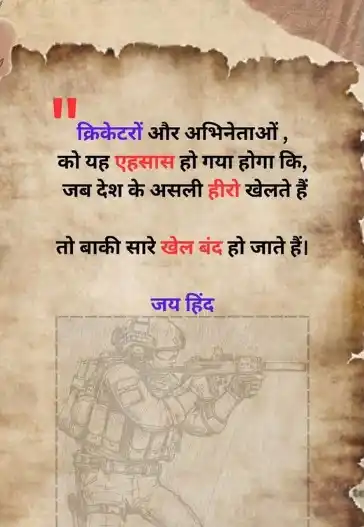 "
क्रिकेटरों और अभिनेताओं ,
को यह एहसास हो गया होगा कि,
जब देश के असली हीरो खेलते हैं
तो बाकी सारे खेल बंद हो जाते हैं।
जय हिंद